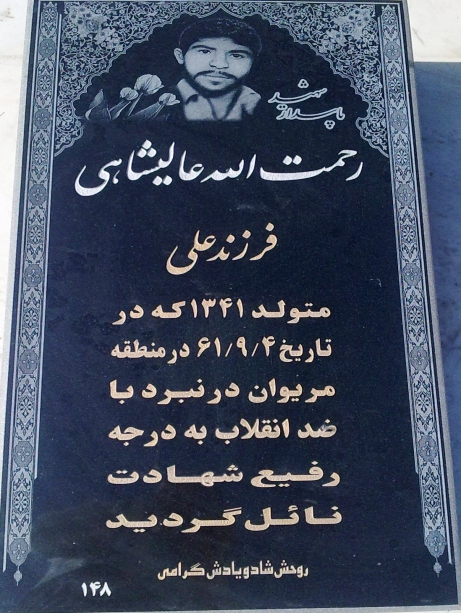 شهید
پاسدار
رحمت الله عالیشاهی
فرزند علی
متولد ۱۳۴۱ که در
تاریخ ۶۱/۹/۴ در منطقه
مریوان در نبرد با
ضد انقلاب به درجه
رفیع شهادت
نائل گردید
روحش شاد و یادش گرامی
۱۴۸